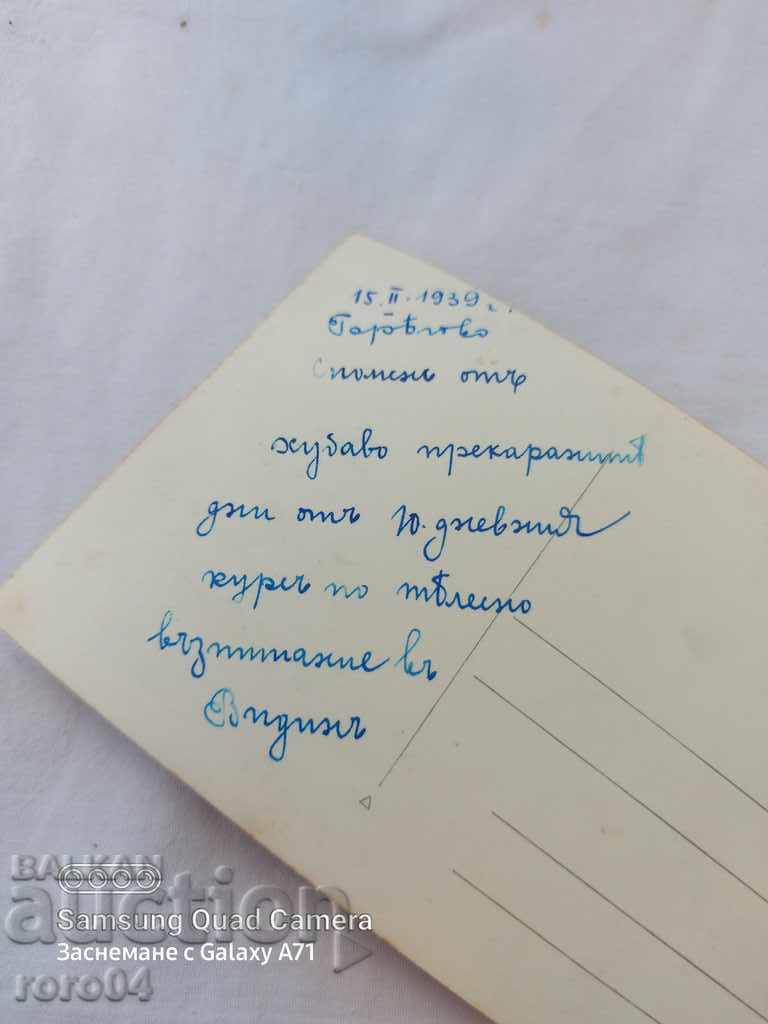 15.II.1939 г.
Спомен отъ
хубаво прекаранитѣ
дни отъ 10. дневния
курсъ по тѣлесно
възпитание въ
Видинъ
BALKAN
auction
roro04
Samsung Quad Camera
Заснемане с Galaxy A71